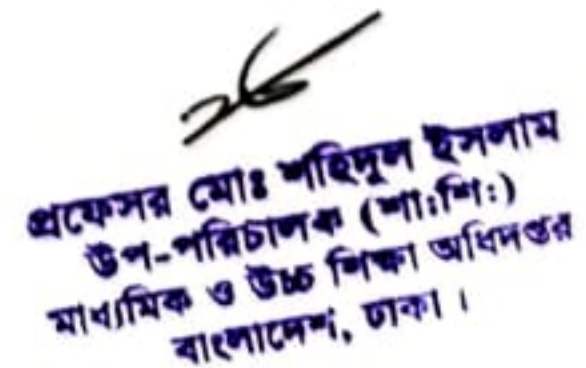 প্রফেসর মোঃ শহিদুল ইসলাম
উপ-পরিচালক (শা:শি:)
মাধ্যমিক ও উচ্চ শিক্ষা অধিদপ্তর
বাংলাদেশ, ঢাকা ।